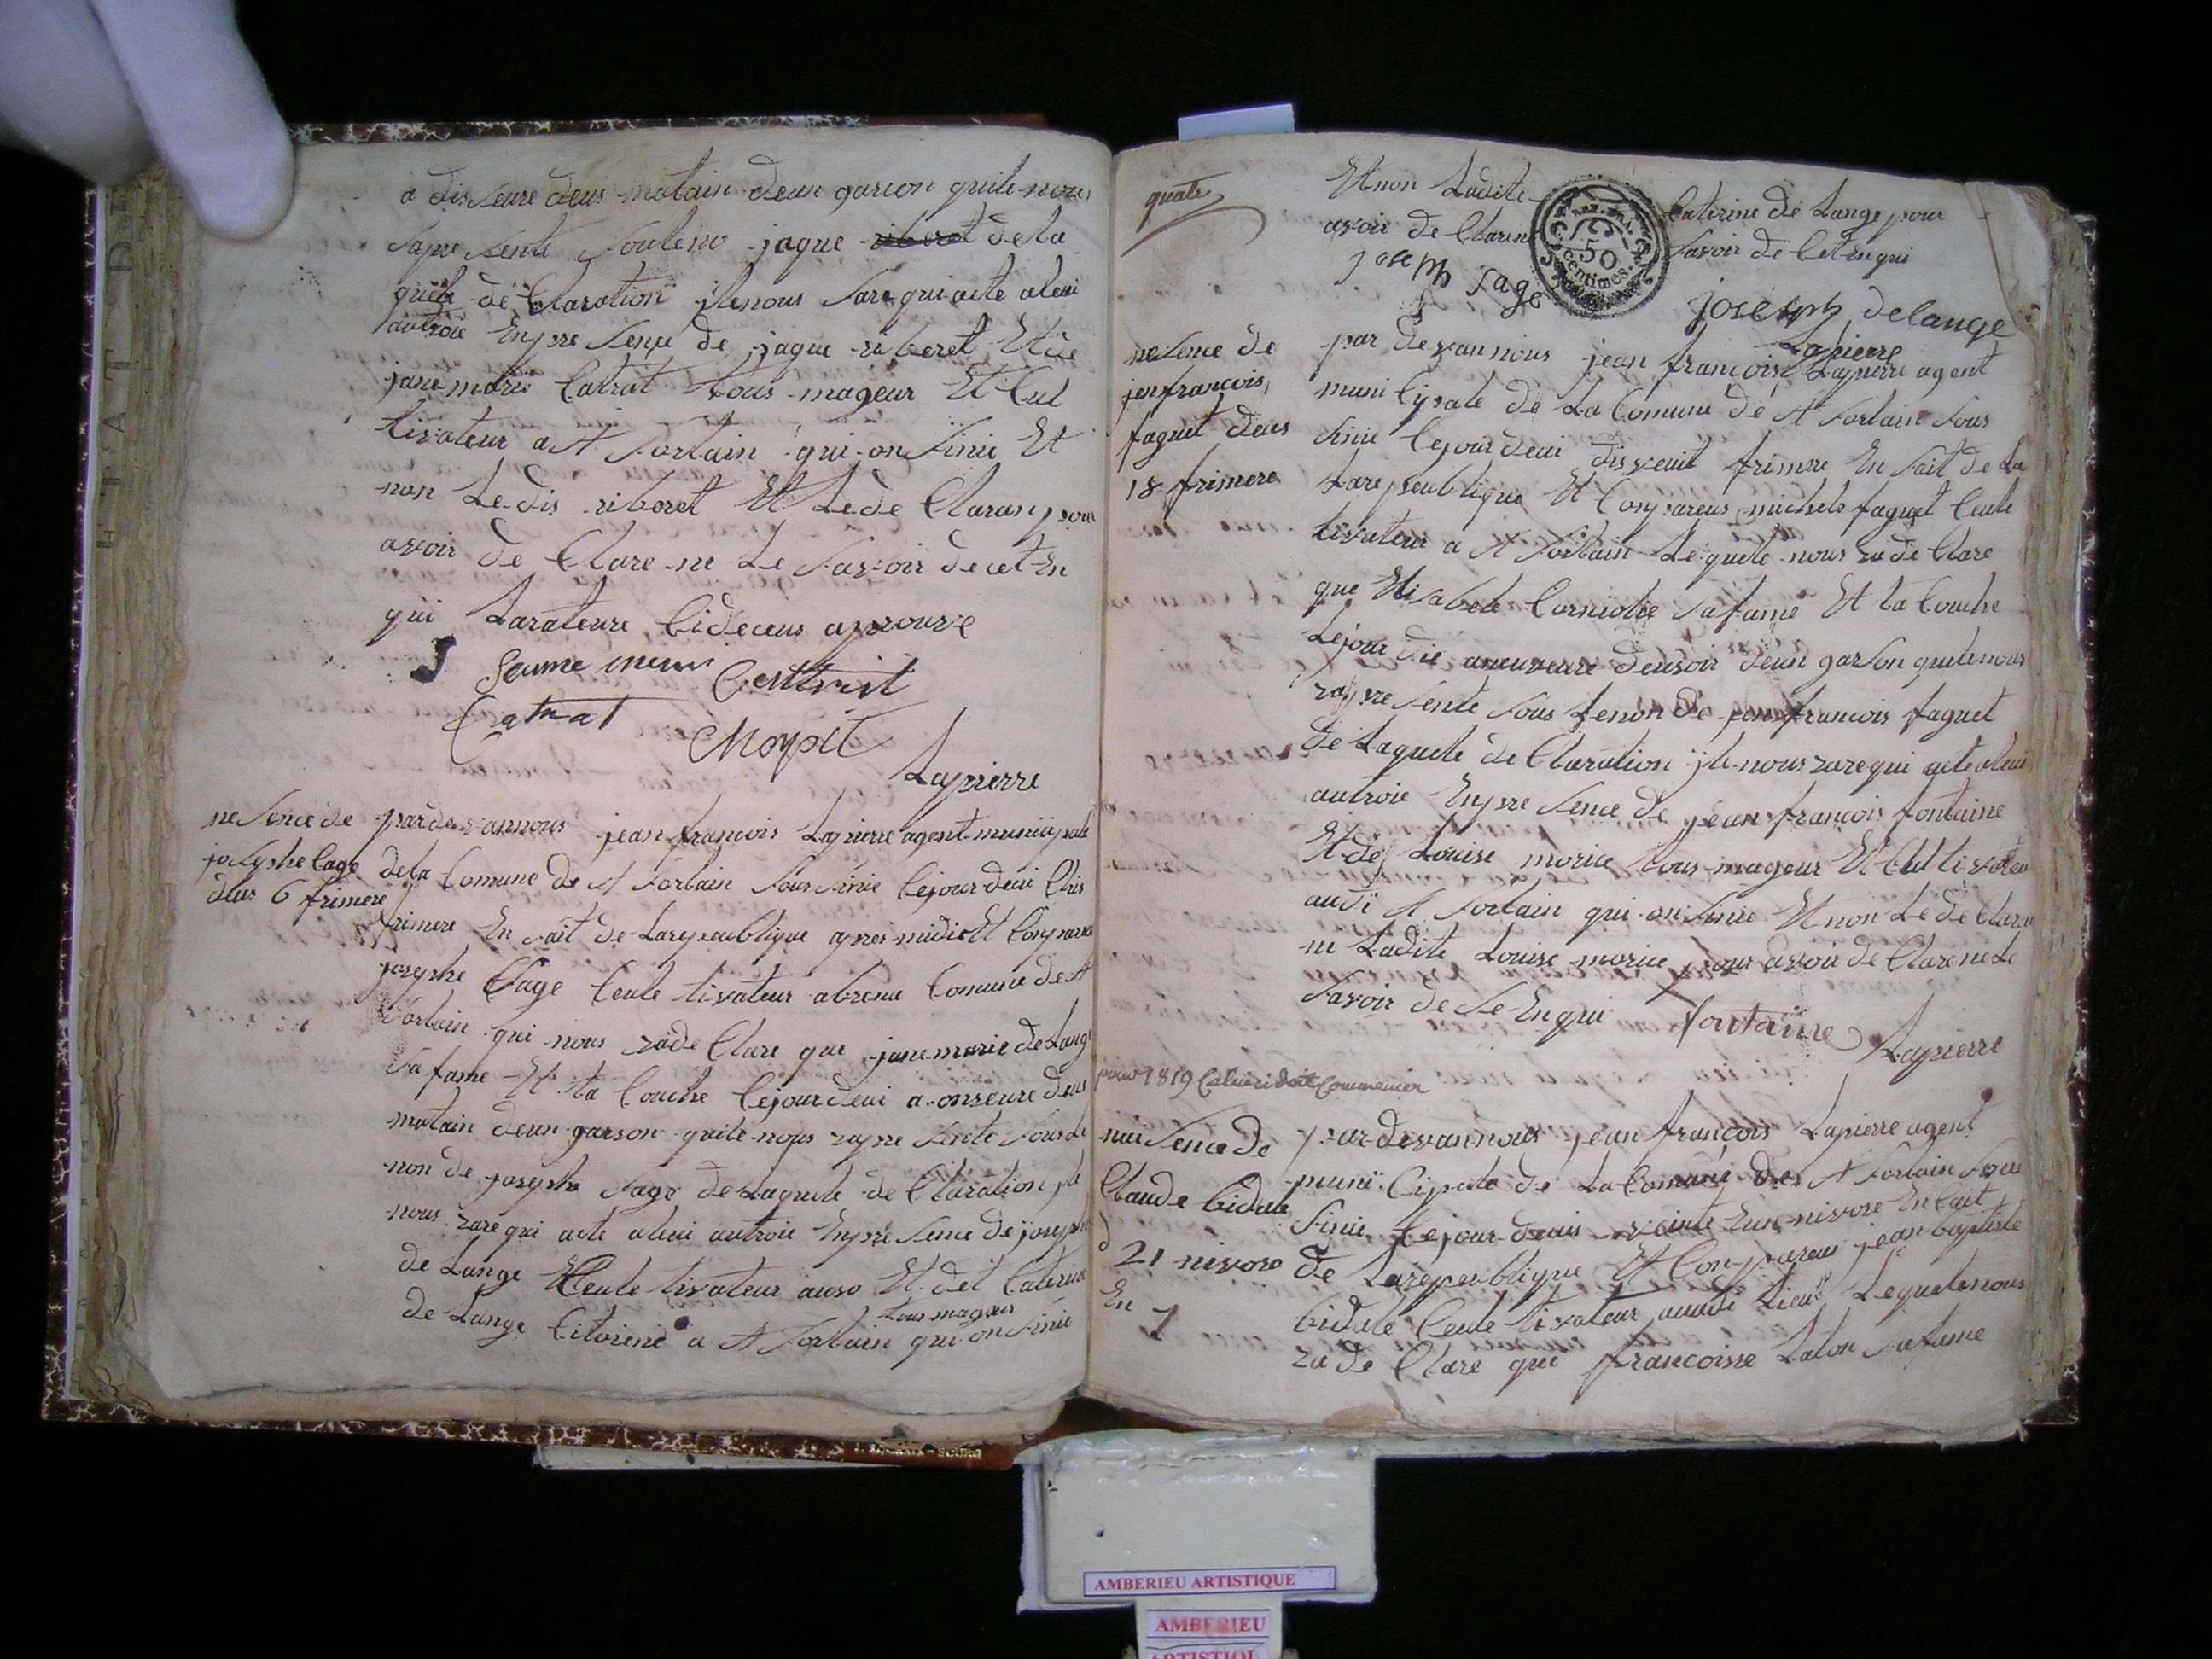 a dis seure deus matain deun garcon quile nous
sapre sente souleno jaque riberet dela
quele de Claration jlenous sare qui acte aleui
autroie Enpre sence de jaque riberet Et de
jane marie Catrat tous mageur Et Cul
tivateur a St Sorlain qui on sinie Et
non Le dis riberet Et Le de Claran pour
avoir de Clare ne Le savoir de cet En
qui Larateure Cideceus aprouve
Catrat
Lapierre
ne sence de
josephe sage
deus 6 frimere
par de vannous jean francois Lapierre agent municipale
dela Comune de St Sorlain sous sinie Cejour deui Chis
frimere En sait de Larepeublique apres midi Et Conpareus
josephe Sage Ceule tivateur abrena Comune de St
Sorlain qui nous zade Clare que jane marie de Lange
sa fame Et ta Couche Cejour deui a onseure deus
matain deun garson quile nous zapre sente sous Le
non de josephe sage de Laquele de Claration jle
nous zare qui acte aleui autroie Enpre sence de josephe
de Lange Ceule tivateur auso Et det Caterine
tous mageur
de Lange Citoiene a St Sorlain qui on sinie
quatr
Et non Ladite Caterine de Lange pour
avoir de Claren savoir de Cet En qui
50
centimes
joseph sage
joseph delange
Lapierre
ne sence de
jen francois
faguet deus
18 frimere
par devan nous jean francois Lapierre agent
muni Cipale de La Comune de St Sorlain sous
sinie Cejour deui diszeuit frimere En sait de La
Larepeublique Et Conpareus michele faguet Ceule
tivateur a St Sorlain Lequele nous zade Clare
que Elisabete Corniolie safame Et ta Couche
Lejour die aneuveure deusoir deun garson quile nous
zapre sente sous Lenon de jen francois faguet
de Laquele de Claration jle nous zare qui acte aleui
autroie Enpre sence de jean francois fontaine
Et de Louise morice tous mageur Et Cultivateur
audi St Sorlain qui on sinie Et non Le de Claran
ne Ladite Louise morice pour avoir de Clare ne Le
savoir de se Enqui
fontaine
Lapierre
pour 1819 Celui ci doit Commencer
nai sence de
Claude bidale
d
21 nivose
En 7
par devan nous jean francois Lapierre agent
muni Cipale de La Comune de St Sorlain sous
sinie Cejour deui vainte Eun nivose En Cait
de Larepeublique Et Conpareus jean baptiste
bidale Ceule tivateur audi Lieus Lequele nous
zade Clare que francoise Laton sa fame
AMBERIEU ARTISTIQUE
AMBERIEU
ARTISTIQUE